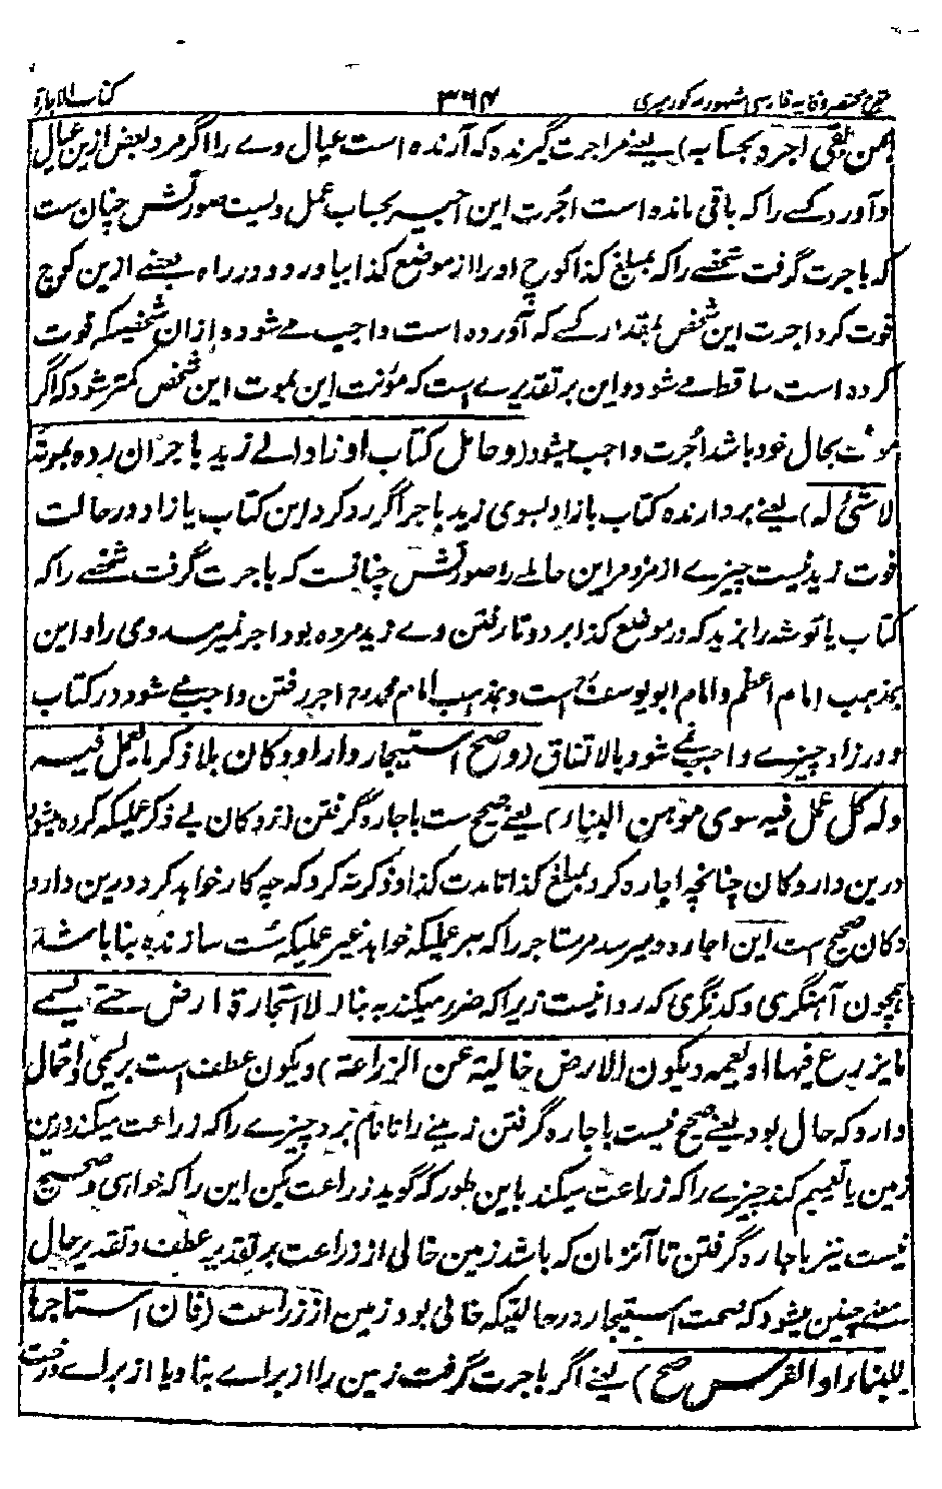 شرح مختصر وقایه فارسی مشهور به کور میری ۳۶۴ کتاب الاجارة
بمن بقی اجره بحسابه) یعنے مراجرت گیرنده که آرنده است عیال وے را اگر مرد بعض ازین عیال
و آورد کسے را که باقی مانده است اجرت این اجیر بحساب عمل ویست صورتش چنان ست
که باجرت گرفت شخصے را که بمبلغ کذا کوچ او را از موضع کذا بیاورد و در راه بعضے ازین کوچ
فوت کرد اجرت این شخص بمقدار کسے که آورده است واجب مے شود و ازان شخصیکه فوت
کرده است ساقط مے شود و این بر تقدیرے ست که مؤنت این بموت این شخص کمتر شود که اگر
مونت بحال خود باشد اجرت واجب میشود (و حامل کتاب او زاد الے زید باجر ان رده بموته
لا شئ له) یعنے بردارنده کتاب یا زاد بسوی زید باجر اگر رد کرد این کتاب یا زاد در حالت
فوت زید نیست چیزے از مزد مر این حامل را صورتش چنانست که باجرت گرفت شخصے را که
کتاب یا توشه را بزید که در موضع کذا برد و تا رفتن وے زید مرده بود اجر نمیرسد وی را و این
بمذهب امام اعظم و امام ابو یوسف ست و بمذهب امام محمد رح اجر رفتن واجب مے شود در کتاب
و در زاد چیزے واجب نمے شود بالاتفاق (و صح استیجار دار او دکان بلا ذکر ما یعمل فیه
وله کل عمل فیه سوی موهن البناء) یعنے صحیح ست باجاره گرفتن دار و دکان بے ذکر عملیکه کرده میشود
درین دار و دکان چنانچه اجاره کرد بمبلغ کذا تا مدت کذا و ذکر نه کرد که چه کار خواهد کرد درین دار و
دکان صحیح ست این اجاره و میرسد مر مستاجر را که هر عملیکه خواهد غیر عملیکه سست سازنده بنا باشد
همچون آهنگری و کدنگری که روا نیست زیرا که ضرر میکند به بنا (و لا استجارة ارض حتے یسمے
ما یزرع فیها او یعمم و یکون الارض خالیة عن الزراعة) و یکون عطف ست بر یسمی و احتمال
دارد که حال بود یعنے صحیح نیست باجاره گرفتن زمینے را تا نام نبرد چیزے را که زراعت میکند درین
زمین یا تعمیم کند چیزے را که زراعت میکند باین طور که گوید زراعت بکن این را که خواهی و صحیح
نیست نیز باجاره گرفتن تا آنزمان که باشد زمین خالی از زراعت بر تقدیر عطف و تقدیر حال
معنے چنین میشود که صحت استیجار در حالتیکه خالی بود زمین از زراعت (فان استاجرها
للبناء او الغرس صح) یعنے اگر باجرت گرفت زمین را از براے بنا و یا از براے درخت